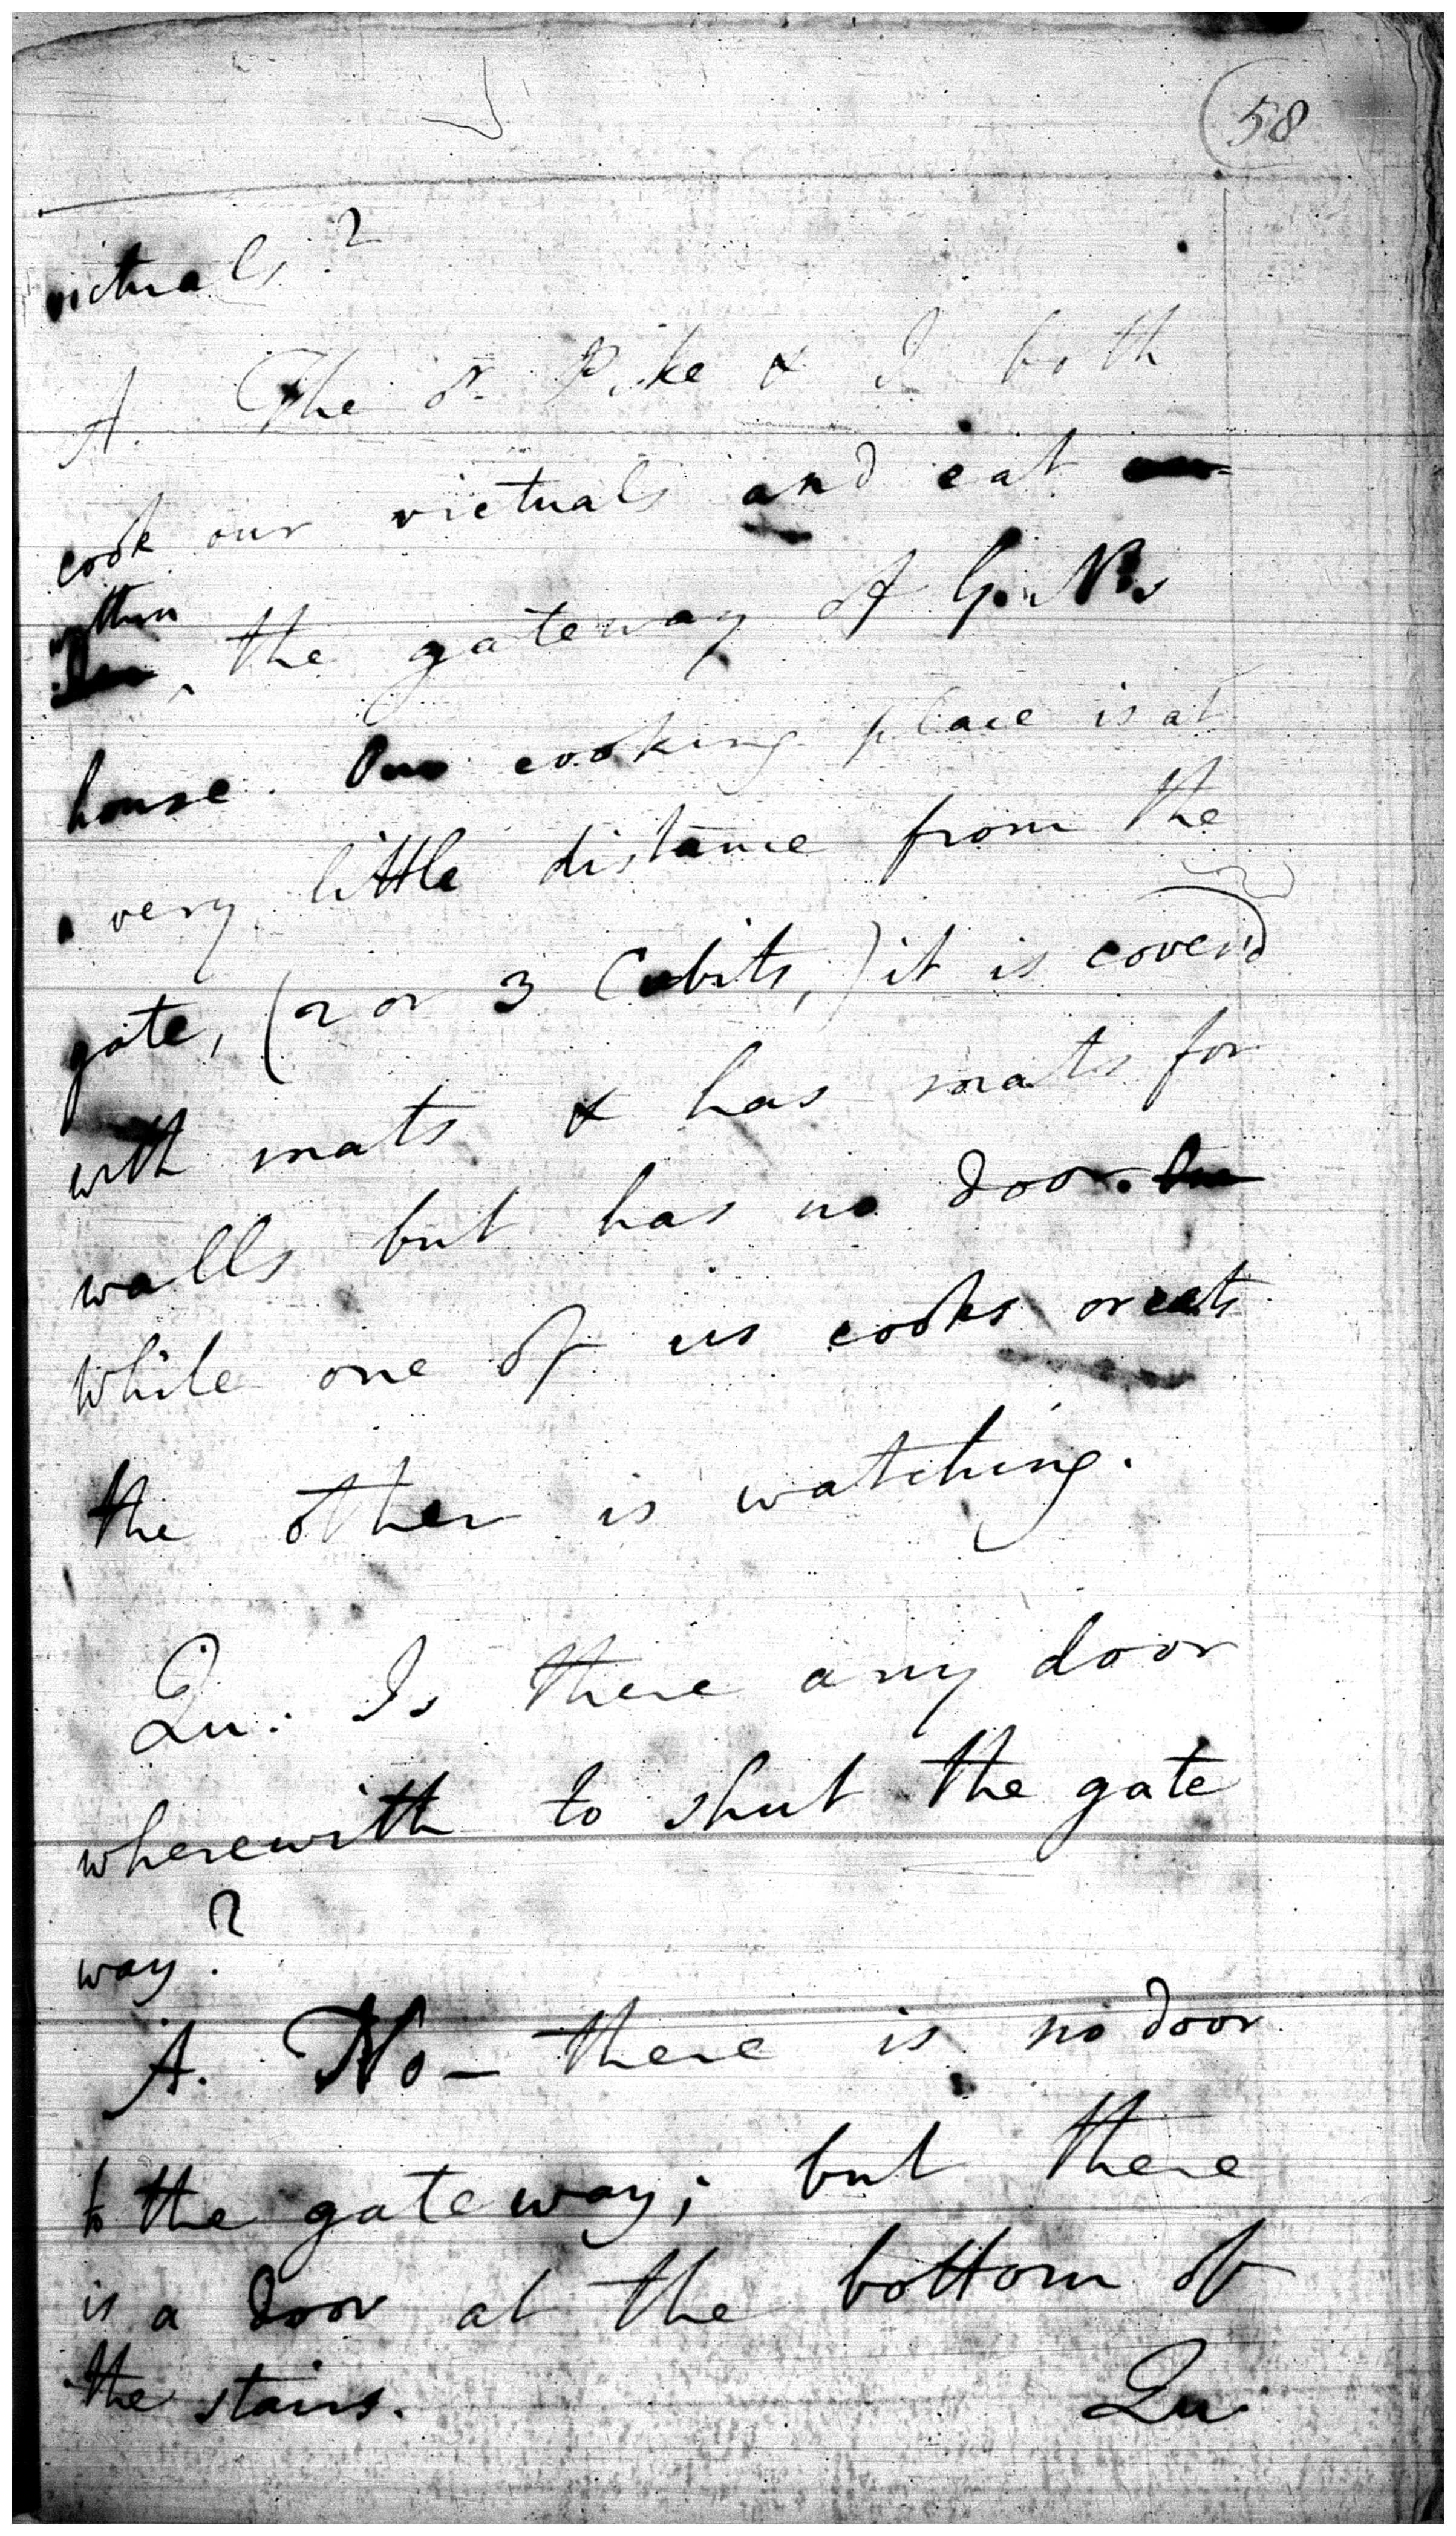 58
victuals?
A. The or Pike & I both
cook our victuals and eat
within
the gateway of G. N.s
house. Our cooking place is at
very little distance from the
gate, (2 or 3 Cubits,) it is cover'd
with mats & has mats for
walls but has no door.
while one of us cooks or eats
the other is watching.
Qu: Is there any door
wherewith to shut the gate
way?
A. No - there is no door
to the gateway; but there
is a door at the bottom of
the stairs.
Qu